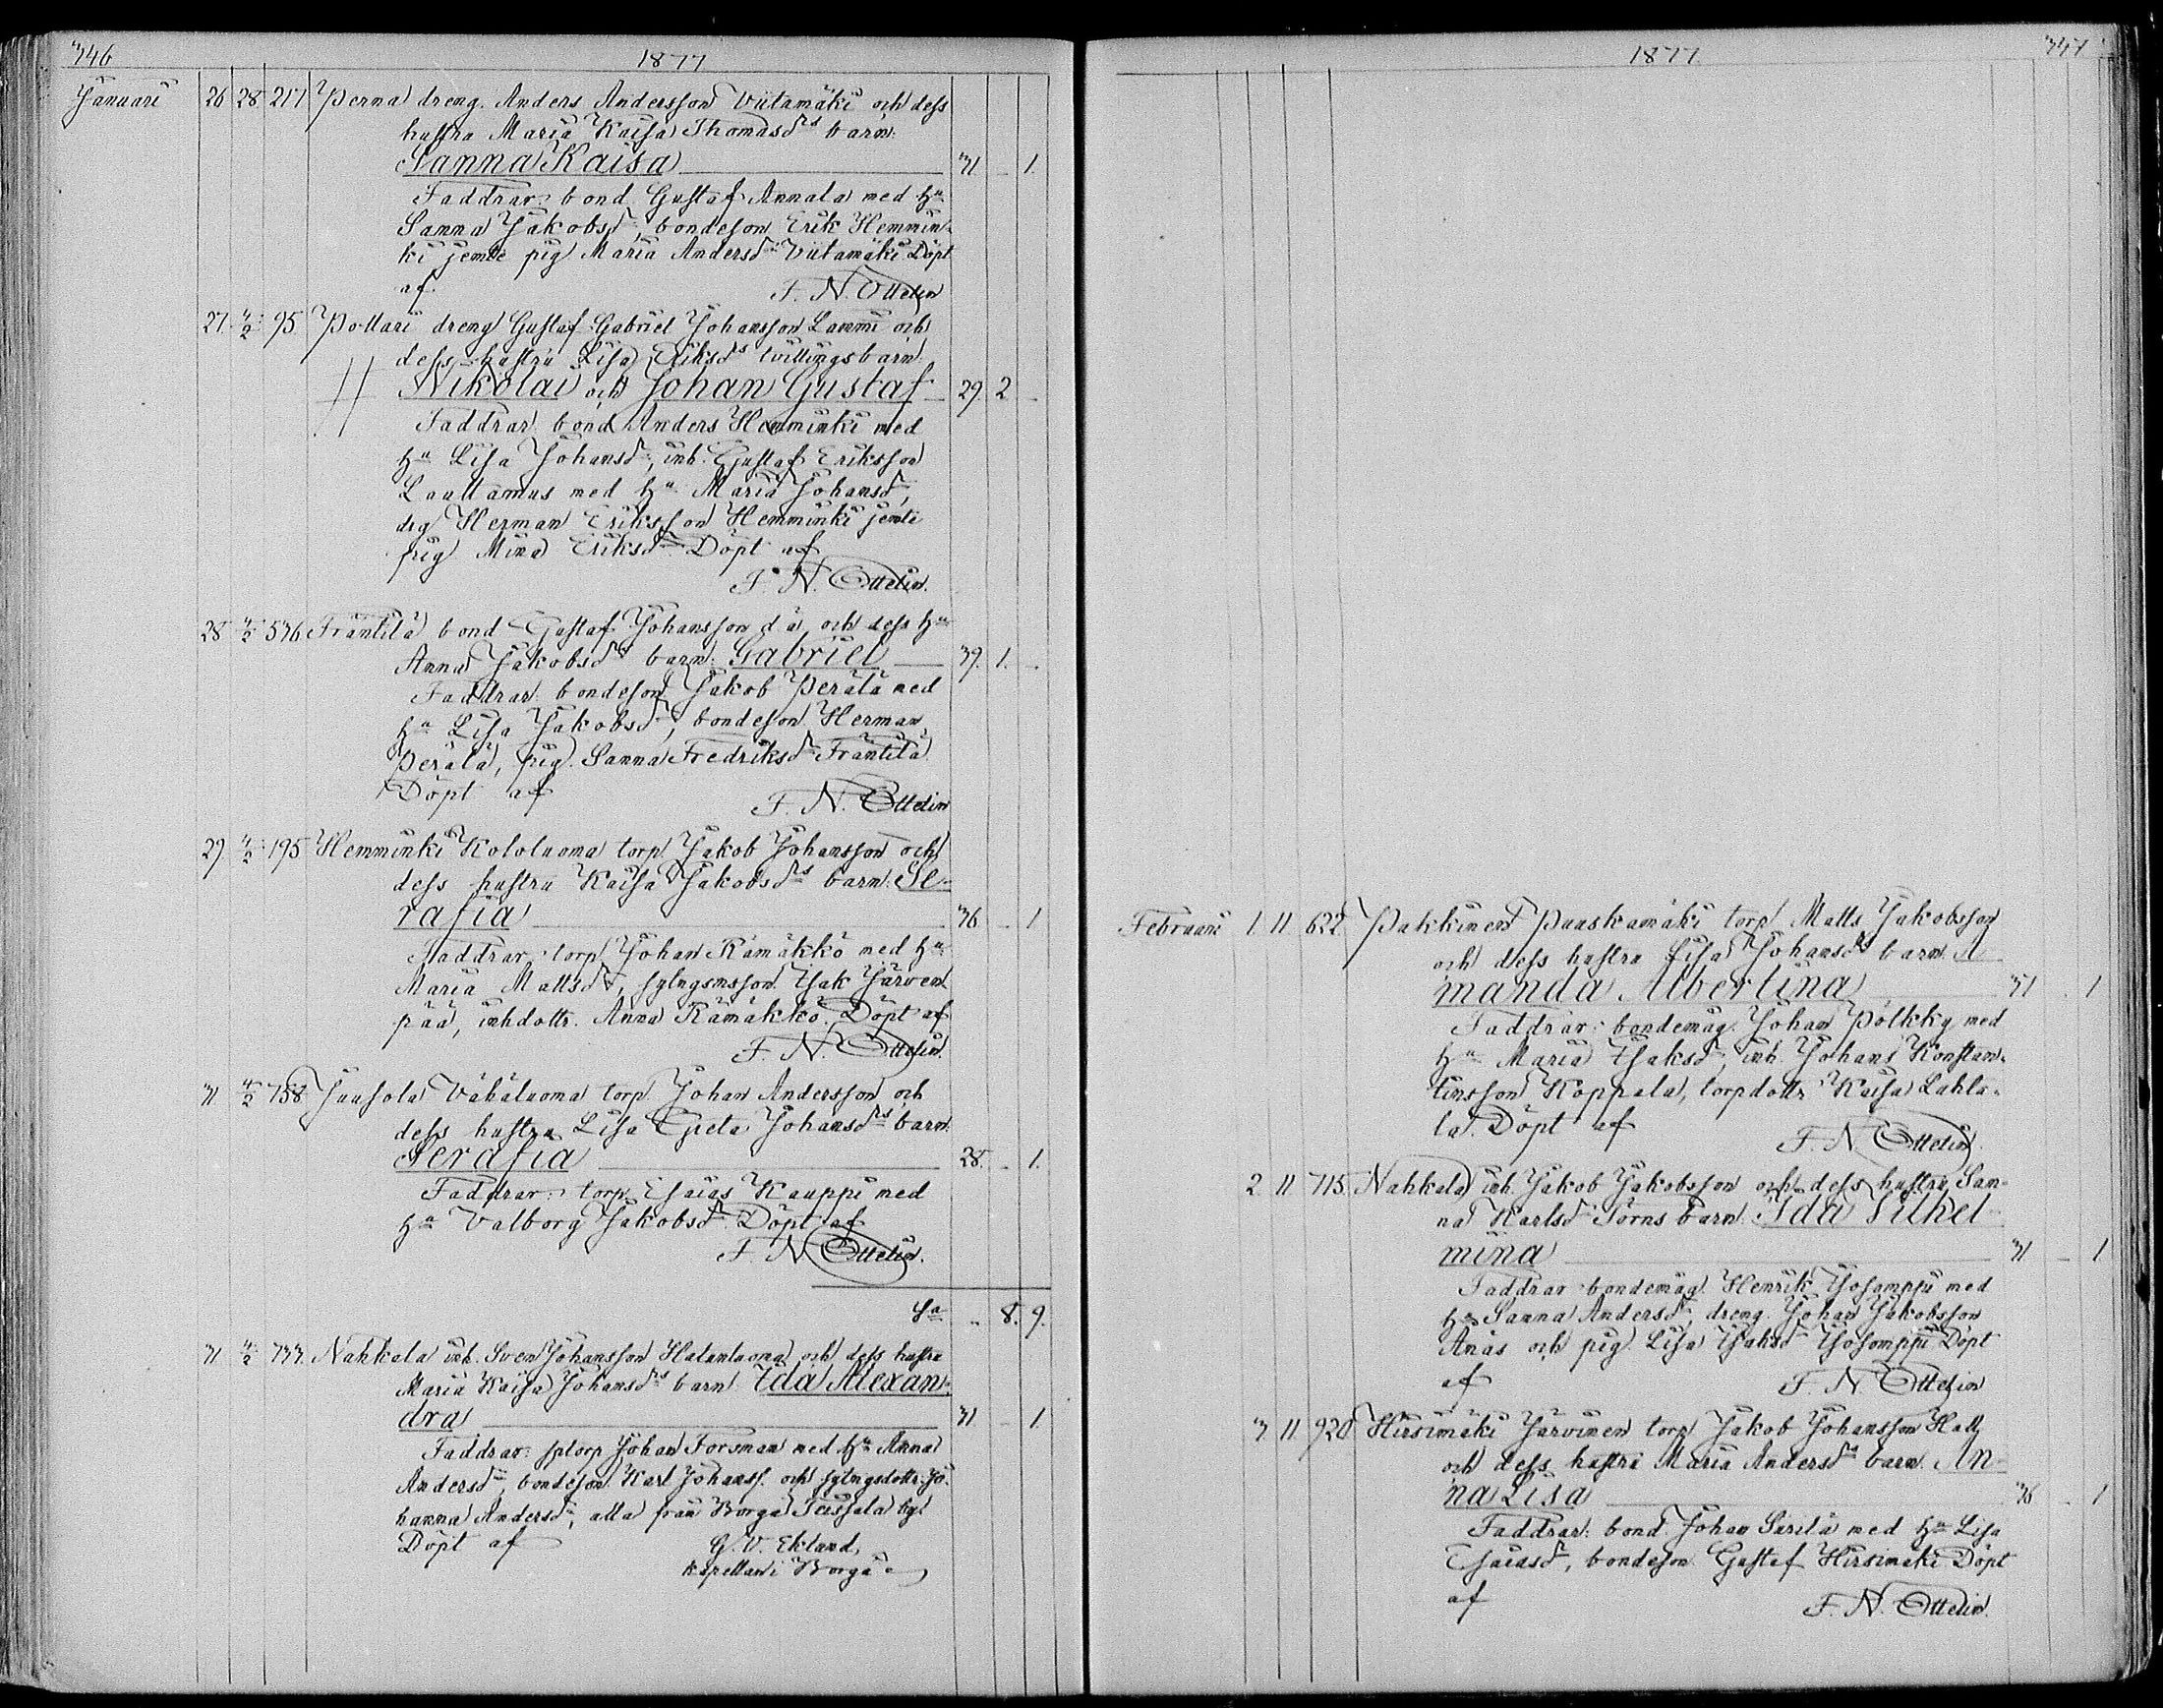 346 1877
Januari 26 28 217 Perna dreng. Anders Andersson Viitamäki och dess
hustru Maria Kaisa Thomasdrs barn:
Sanna Kaisa 31 1.
Faddrar: bond. Gustaf Annala med hu
Sanna Jakobsdr, bondeson Erik Hemmin-
ki jemte pig Maria Andersdr Viitamäki Döpt
af F. N. Ottelin
27. 4/2 95 Pottari dreng Gustaf Gabriel Johansson Lammi och
dess hustru Lisa Eriksdrs tvillingsbarn:
Nikolai och Johan Gustaf 29. 2
Faddrar bond Anders Hemminki med
hu Lisa Johansdr, inh. Gustaf Eriksson
Lauttamus med hu Maria Johansdr,
drg Herman Eriksson Hemminki jemte
pig Mina Eriksdr Döpt af
F. N. Ottelin.
28 4/2 536 Frantilä bond Gustaf Johansson d ä och dess hu
Anna Jakobsdrs barn: Gabriel 39. 1.
Faddrar bondeson Jakob Perälä med
hu Lisa Jakobsdr, bondeson Herman
Perälä, pig. Sanna Fredriksdr Frantilä
Döpt af F. N. Ottelin
29 4/2 195 Hemminki Kololuoma torp. Jakob Johansson och
dess hustru Kaisa Jakobsdrs barn: Se-
rafia 36 1
Faddrar torp Johan Rämäkkö med hu
Maria Mattsdr, sytngsmsson Isak Järven-
pää, inhdottr. Anna Rämäkkö. Döpt af
F. N. Ottelin.
31 4/2 758 Juusola Vähäluoma torp Johan Andersson och
dess hustru Lisa Greta Johansdrs barn:
Serafia 28. 1.
Faddrar: torp. Esaias Kauppi med
hu Valborg Jakobsdr. Döpt af
F. N. Ottelin.
Sa 8. 9.
31 4/2 733. Nahkala inh. Sven Johansson Hatanluoma och dess hustru
Maria Kaisa Johansdrs barn Ida Alexan-
dra 31 1.
Faddrar: sptorp Johan Forsman med hu Anna
Andersdr, bondeson Karl Johanss. och sytngsdottr. Jo-
hanna Andersdr, alla från Borgå Teissala by.
Döpt af G. V. Eklund,
kapellan i Borgå
1877 347
Februari 1 11 622 Pakkinen Paaskamäki torp. Matts Jakobsson
och dess hustru Lisa Johansdrs barn. A-
manda Albertina 31 1
Faddrar: bondemåg. Johan Pölkky med
hu Maria Isaksdr, inh. Johans Konstan-
tinsson Koppala, torpdottr Kaisa Lahla-
la. Döpt af F. N. Ottelin
2 11 715. Nahkala inh. Jakob Jakobsson och dess hustru San-
na Karlsdr Törns barn. Ida Vilhel-
mina 31 1
Faddrar bondemåg. Henrik Isosomppi med
hu Sanna Andersdr, dreng. Johan Jakobsson
Anäs och pig. Lisa Isaksdr Isosomppi Döpt
af F. N. Ottelin
3 11 920 Hirsimäki Järvinen torp Jakob Johansson Hall
och dess hustru Maria Andersdrs barn. An-
na Lisa 36 1
Faddrar: bond. Johan Sarila med hu Lisa
Esaiasdr, bondeson Gustaf Hirsimäki Döpt
af F. N. Ottelin.